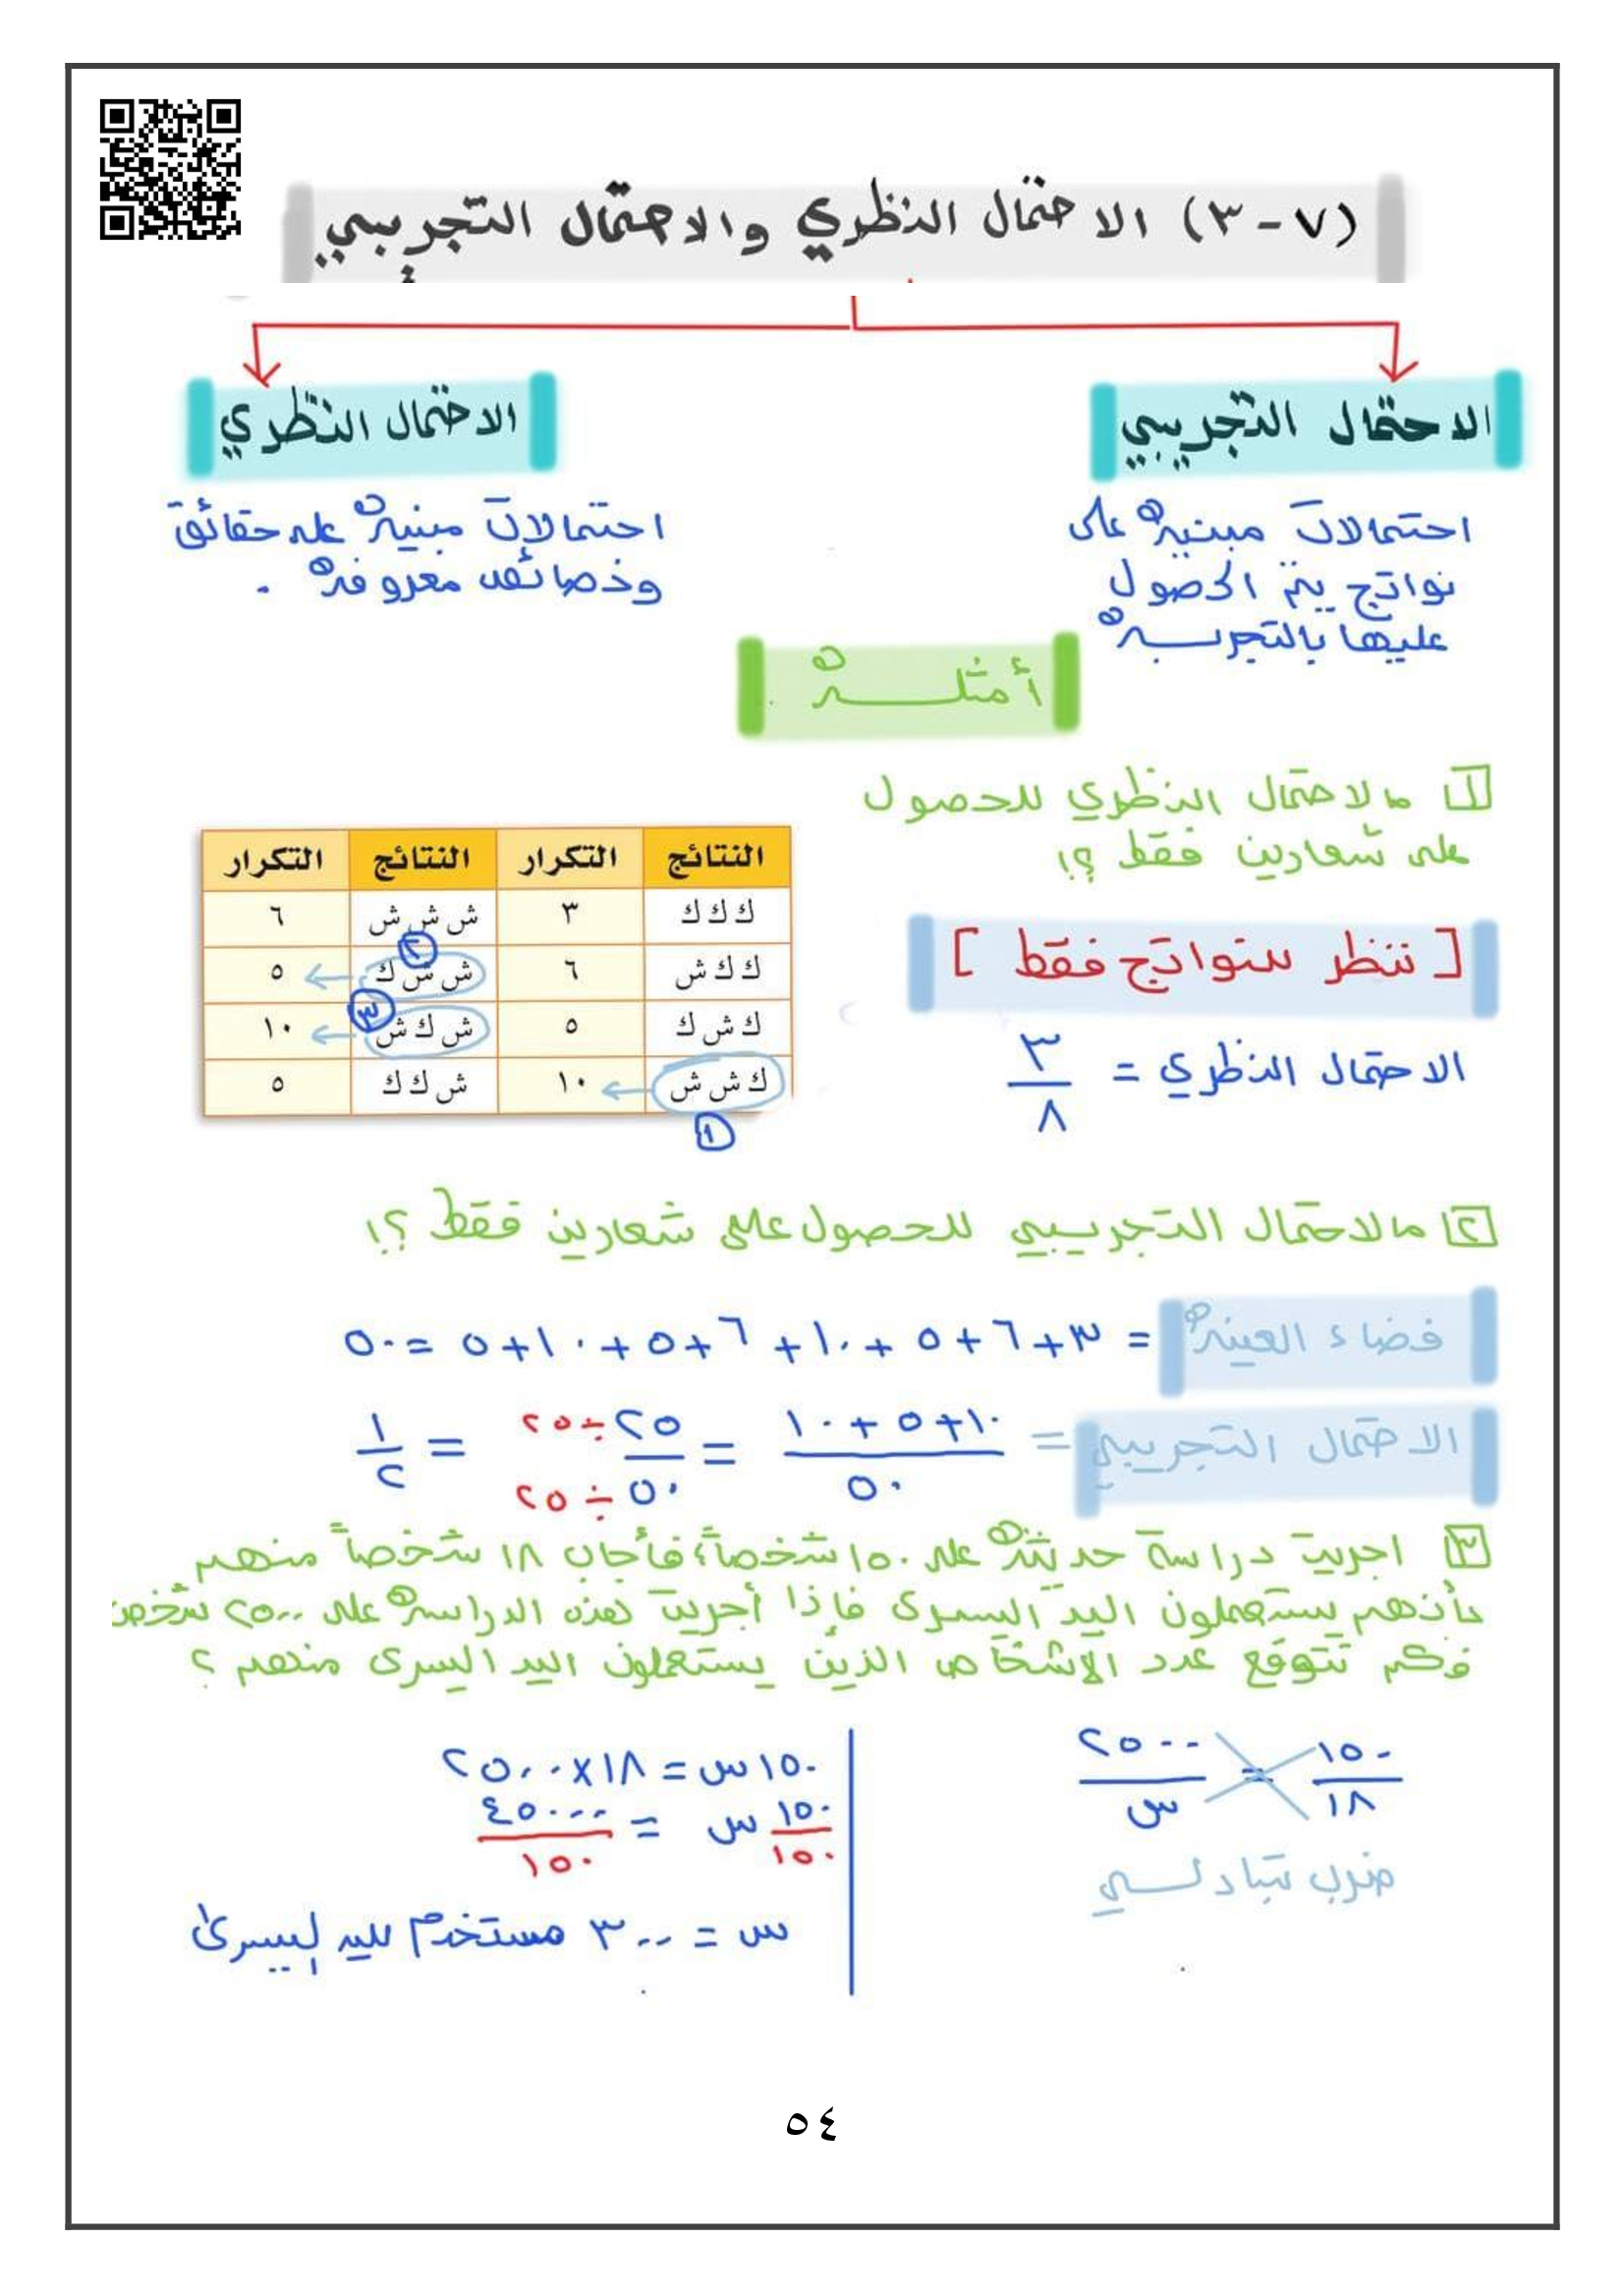 (٧-٣) الاحتمال النظري والاحتمال التجريبي
الاحتمال التجريبي
احتمالات مبنية على
نواتج يتم الحصول
عليها بالتجربة
الاحتمال النظري
احتمالات مبنية على حقائق
وخصائص معروفة .
أمثلة
١ مالاحتمال النظري للحصول
على شعارين فقط ؟!
[ ننظر للنواتج فقط ]
الاحتمال النظري = ٣/٨
النتائج التكرار النتائج التكرار
ك ك ك ٣ ش ش ش ٦
ك ك ش ٦ ش ش ك ٥ ٢
ك ش ك ٥ ش ك ش ١٠ ٣
ك ش ش ١٠ ش ك ك ٥
١
٢ مالاحتمال التجريبي للحصول على شعارين فقط ؟!
فضاء العينة = ٣+٦+٥+١٠+٦+٥+١٠+٥ =٥٠
الاحتمال التجريبي = ١٠+٥+١٠/٥٠ = ٢٥÷٢٥/٥٠÷٢٥ = ١/٢
٣ اجريت دراسة حديثة على ١٥٠ شخصاً؛ فأجاب ١٨ شخصاً منهم
بأنهم يستعملون اليد اليسرى فإذا أجريت هذه الدراسة على ٢٥٠٠ شخص
فكم تتوقع عدد الأشخاص الذين يستعملون اليد اليسرى منهم ؟
١٥٠/١٨ = ٢٥٠٠/س
ضرب تبادلي
١٥٠س = ١٨×٢٥٠٠
١٥٠/١٥٠ س = ٤٥٠٠٠/١٥٠
س = ٣٠٠ مستخدم لليد اليسرى
٥٤